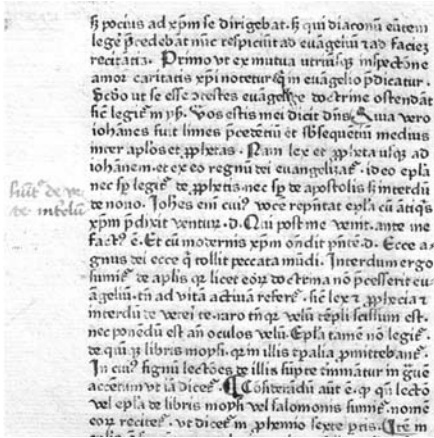 sꝫ pocius ad xp̄m se dirigebat. sꝫ qui diaconū eūtem
legē p̄cedebāt nūc respiciūt ad euāgeliū ⁊ ad faciez
recitātis. Primo vt ex mutua utriusqꝫ inspectōne
amor caritatis xp̄i notetur q̄ in euāgelio p̄dicatur.
Scd̄o ut se esse testes euāgelice doctrine ostendāt
sic̄ legit᷑ in ysa. Vos estis mei dicit dn̄s. Quia vero
iohānes fuit limes p̄cedētiū et sb̄sequētiū medius
inter aplōs et ꝓphetas. Nam lex et ꝓpheta usqꝫ ad
iohānem. et ex eo regnū dei euangelizat᷑. ideo ep̄la
nec sp̄ legit᷑ de ꝓphetis nec sp̄ de apostolis sꝫ interdū
de nouo. Ioh̄es eni cuiꝰ vocē rep̄ntat ep̄la cū ātiq̄s
xp̄m p̄dixit ventuꝝ. d. Qui post me venit. ante me
factꝰ ē. Et cū modernis xp̄m on̄dit p̄ntē. d. Ecce a-
gnus dei ecce q̄ tollit peccata mūdi. Interdum ergo
sumit᷑ de aplis qꝛ licet eoꝝ doctrina nō p̄cesserit eu-
āgeliū. tn̄ ad vitā actiuā refert᷑. sic̄ lex ⁊ ꝓphecia ⁊
interdū de veteri te. raro tn̄ qꝛ velū tēpli scissum est.
nec ponēdū est an̄ oculos velū. Ep̄la tamē nō legit᷑
de quīqꝫ libris moysi. qꝛ in illis tp̄alia ꝓmittebant᷑.
In cuiꝰ signū lectōes de illis sūpte t̄minātur in graue
accentum vt iā dicet᷑. Cōsiderādū aūt ē. ꝙ qn̄ lectō
vel ep̄la de libris moysi vel salomonis sumit᷑. nomē
eoꝝ recitet᷑. vt dicet᷑ in ꝓhemio sexte ptis. Itē in